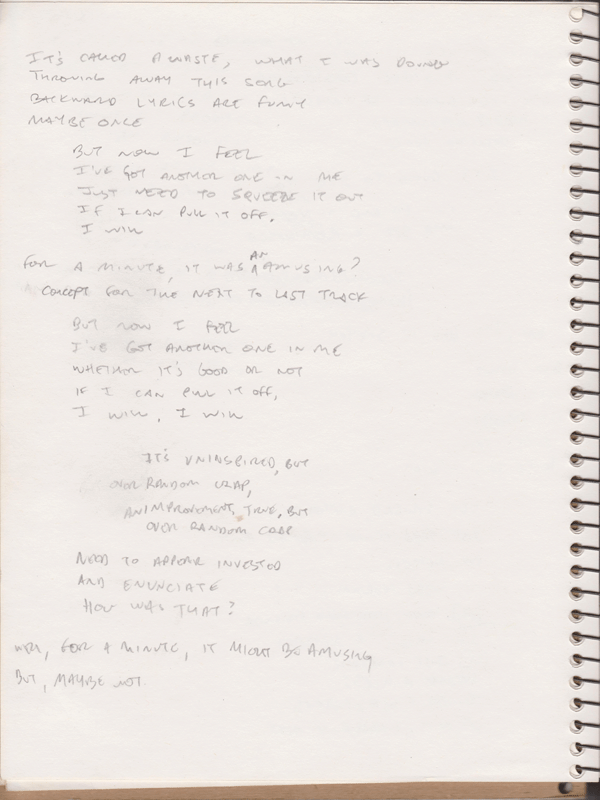 IT'S CALLED A WASTE, WHAT I WAS DOING
THROWING AWAY THIS SONG
BACKWARD LYRICS ARE FUNNY
MAYBE ONCE
BUT NOW I FEEL
I'VE GOT ANOTHER ONE IN ME
JUST NEED TO SQUEEZE IT OUT
IF I CAN PULL IT OFF,
I WILL
FOR A MINUTE, IT WAS AN AMUSING?
CONCEPT FOR THE NEXT TO LAST TRACK
BUT NOW I FEEL
I'VE GOT ANOTHER ONE IN ME
WHETHER IT'S GOOD OR NOT
IF I CAN PULL IT OFF,
I WILL, I WILL
IT'S UNINSPIRED, BUT
OVER RANDOM CRAP,
AN IMPROVEMENT, TRUE, BUT
OVER RANDOM CRAP
NEED TO APPEAR INVESTED
AND ENUNCIATE
HOW WAS THAT?
WELL, FOR A MINUTE, IT MIGHT BE AMUSING
BUT, MAYBE NOT.